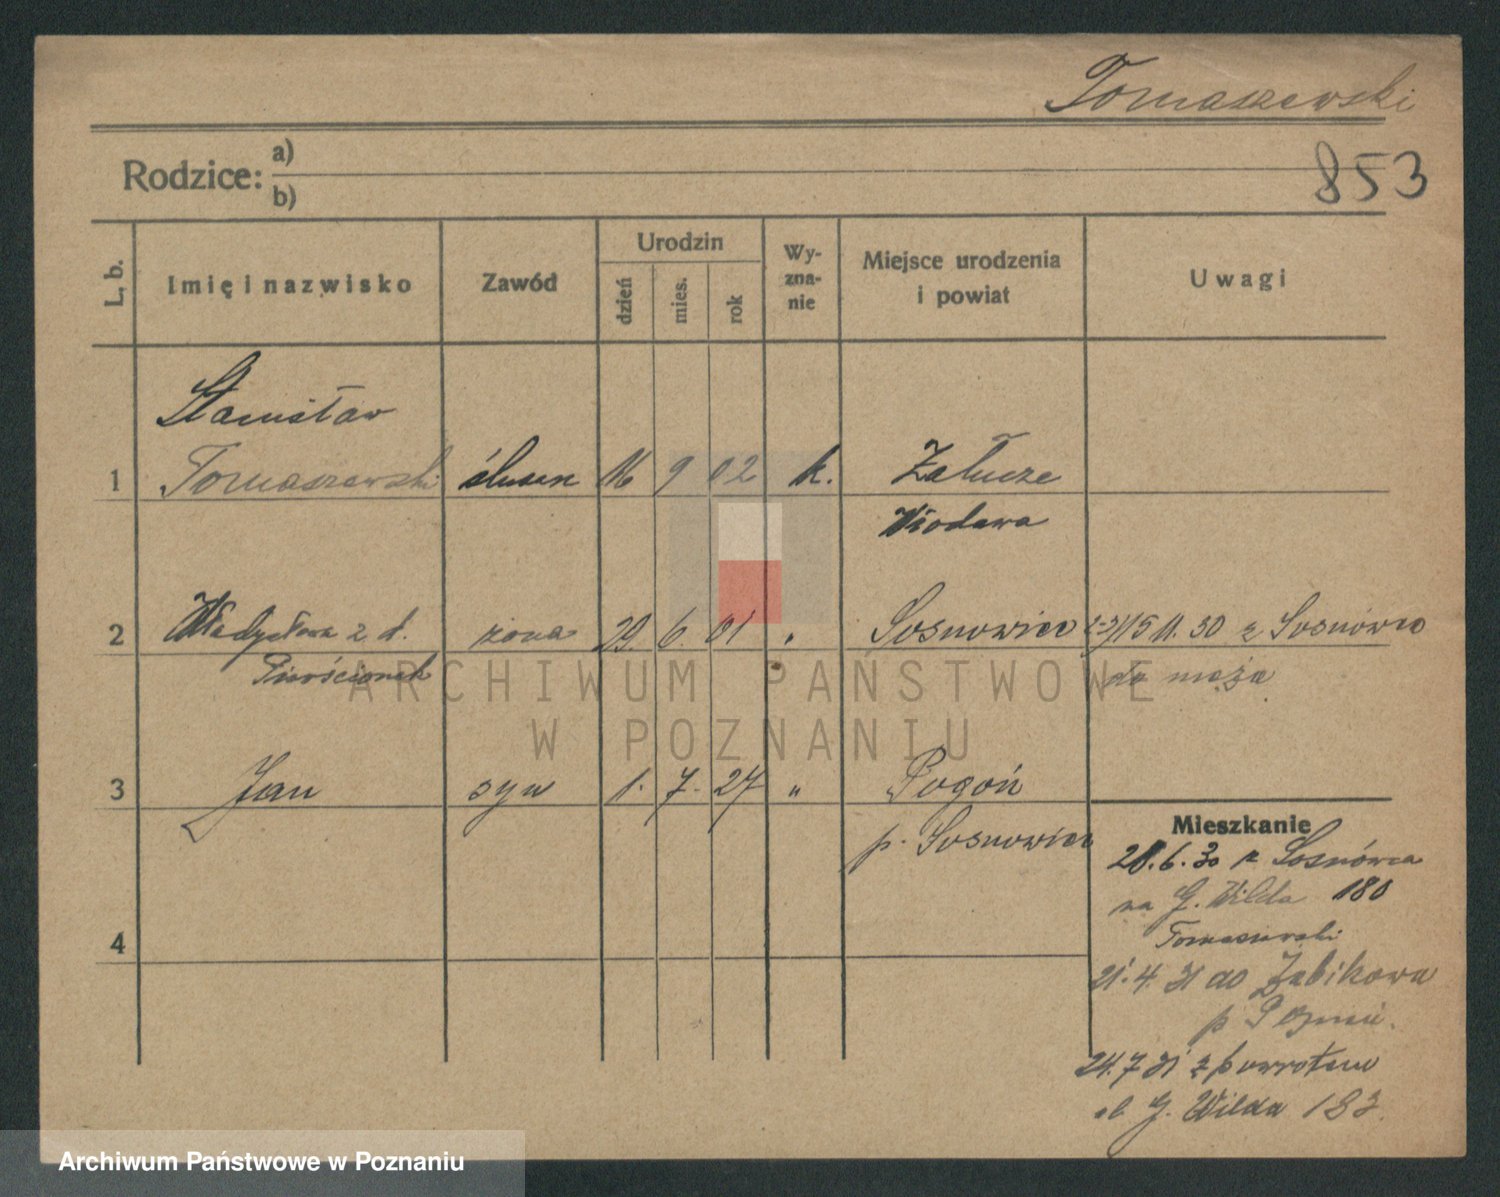 Tomaszewski
853
Rodzice: a)
b)
L. b.
Imię i nazwisko
Zawód
Urodzin
dzień
mies.
rok
Wy-
zna-
nie
Miejsce urodzenia
i powiat
Uwagi
Stanisław
1 Tomaszewski ślusarz 16 9 02 k. Załucze
Włodawa
2 Władysława z d. żona 29. 6. 01 „ Sosnowiec 2-3) 15 11. 30 z Sosnówca
Pierścionek do męża
3 Jan syn 1. 7. 27 „ Pogoń
p. Sosnowiec
Mieszkanie
28.6.30 z Sosnówca
na G. Wilda 180
Tomaszewski
4
21.4.31 do Żabikowa
p Pozn.
24.7 31 z powrotem
G. Wilda 183.
ARCHIWUM PAŃSTWOWE
W POZNANIU
Archiwum Państwowe w Poznaniu